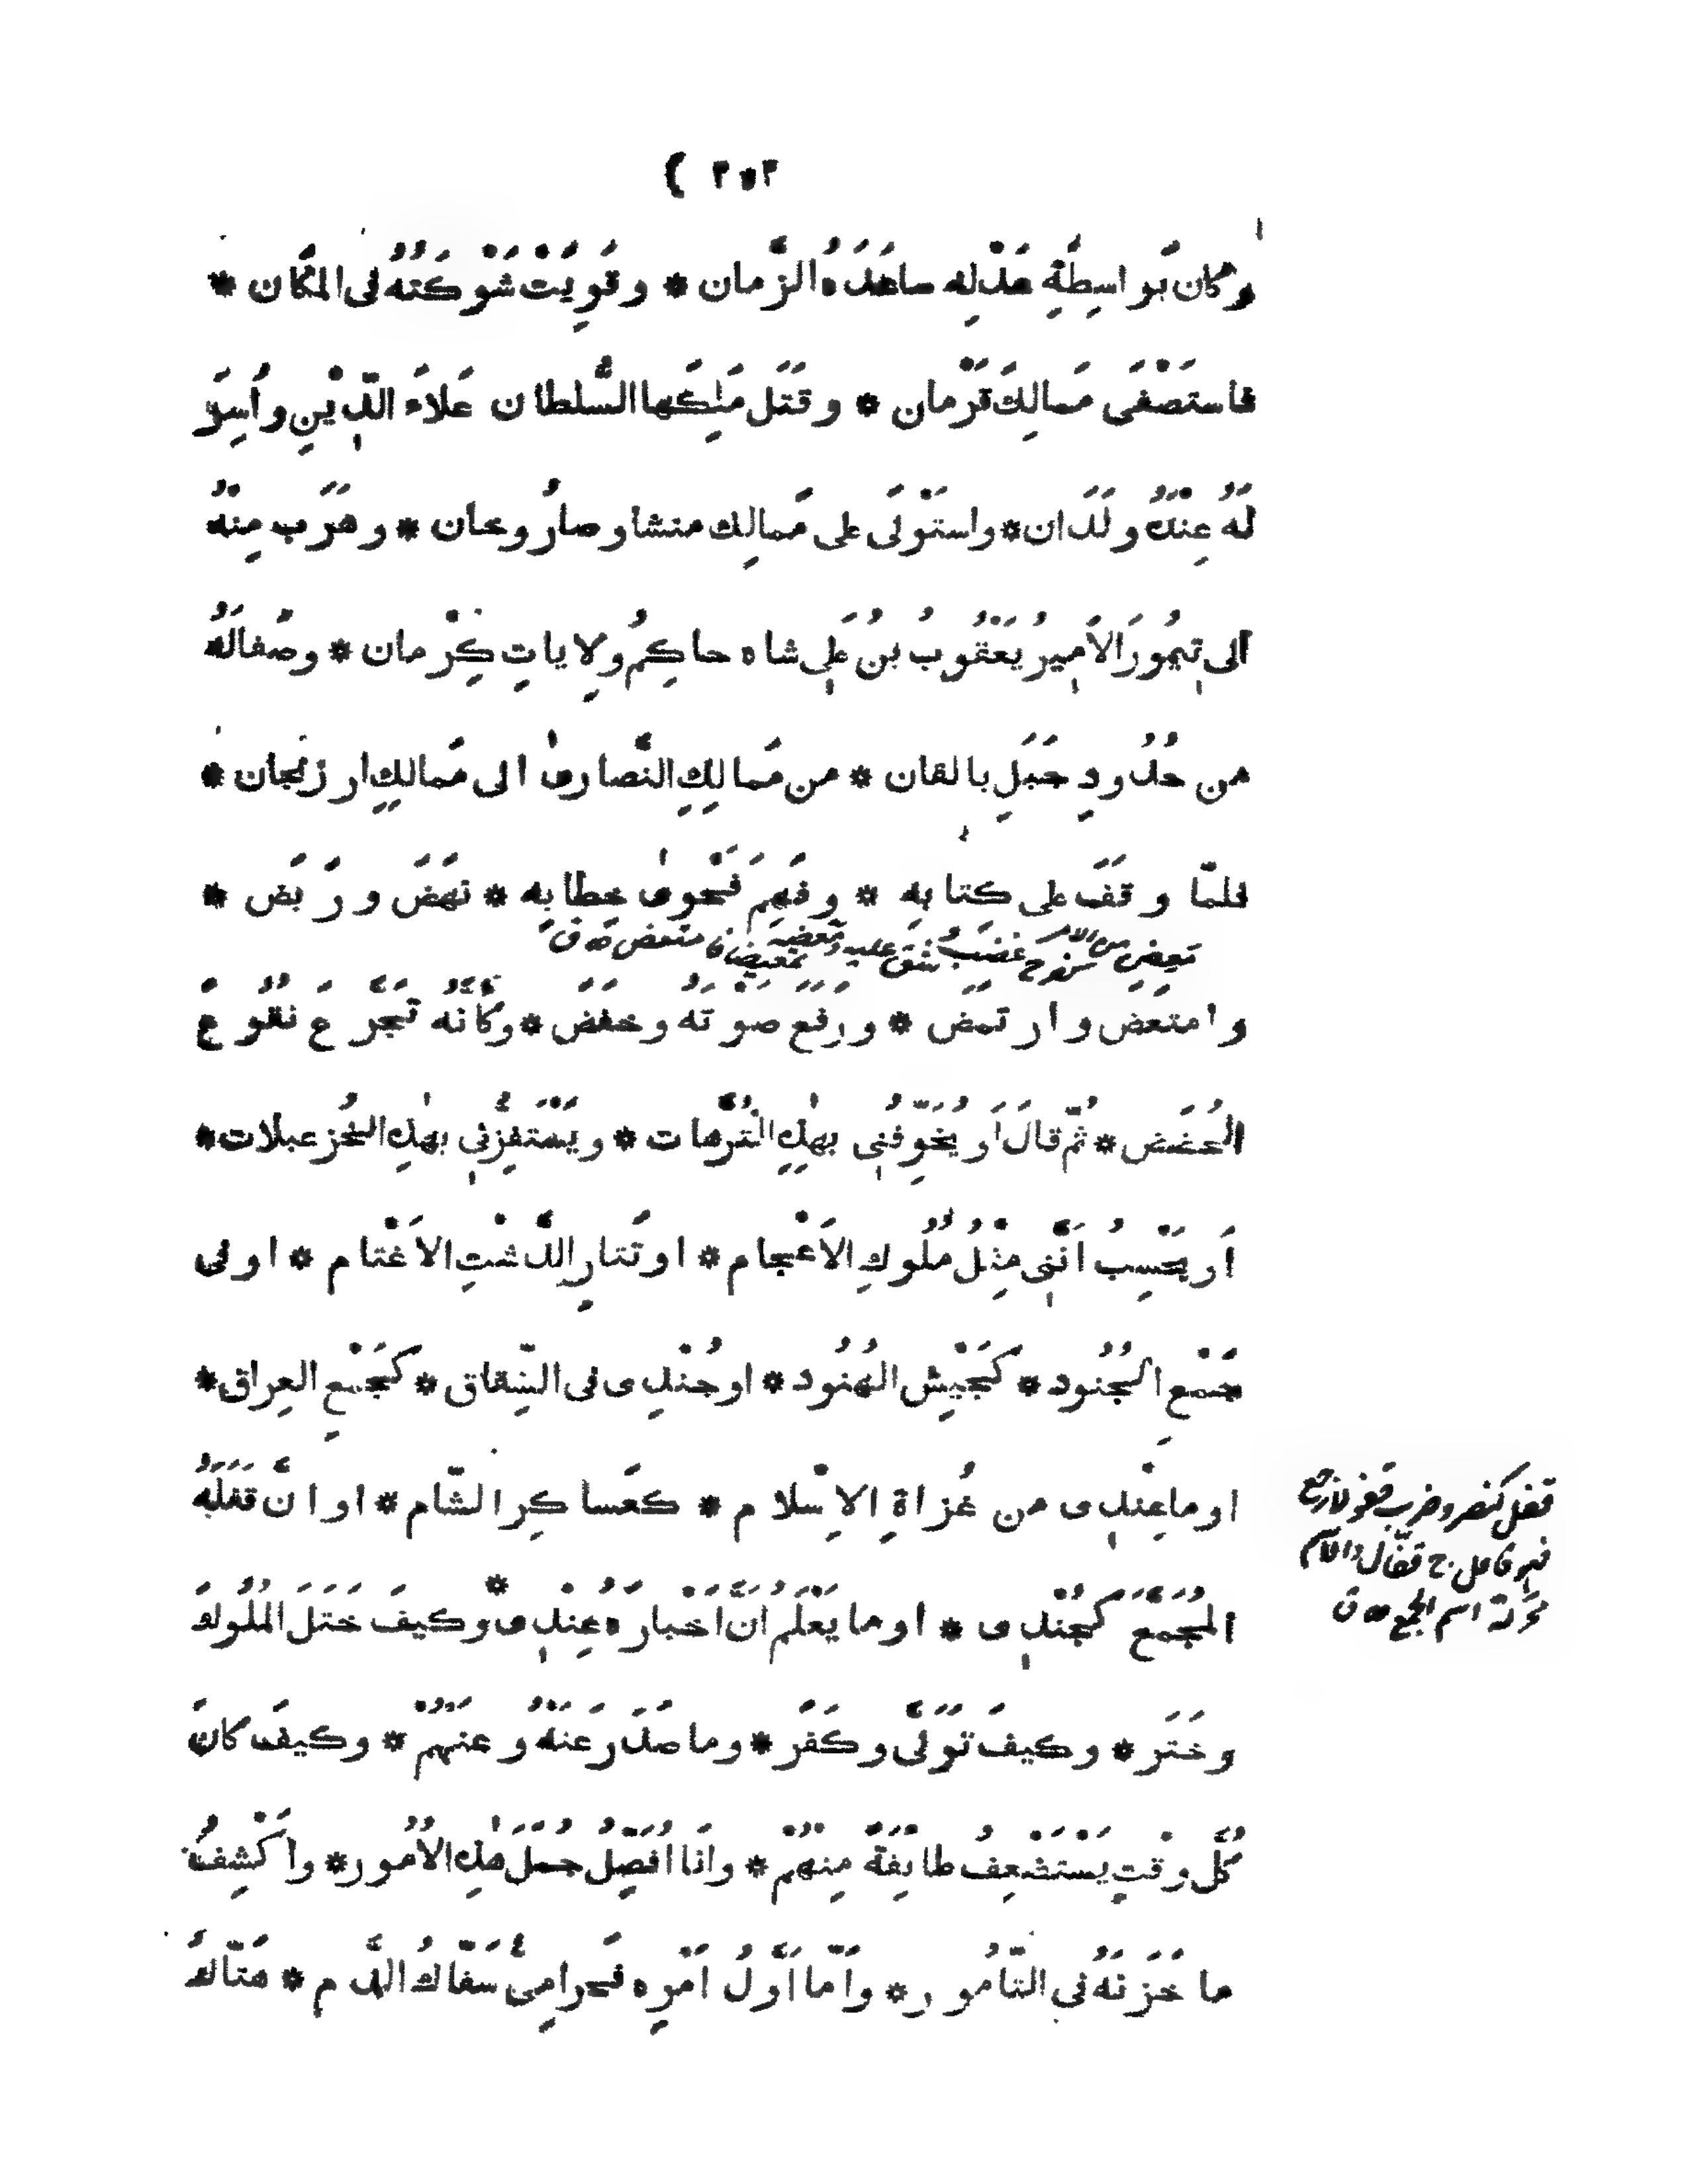 ( ٢٧٣
وكان بَواسِطَةِ عَدْلِه ساعَدَهُ الزَّمان * وقَوِيَتْ شَوْكَتُهُ فى المَكان *
فاستَصْفَى مَمالِكَ قَرْمان * وقَتَل مَلِكَها السُّلطان عَلاءَ الدِّيْنِ وأُسِرَ
لَهُ عِنْدَهُ ولَدَان * واستَوْلَى على مَمالِك منتشا وصارُوخان * وهَرَب مِنْهُ
الى تِيمُورَ الاَمِيرُ يَعْقُوبُ بنُ عَلِى شاه حاكِمُ وِلاياتِ كِرْمان * وصَفا لَهُ
من حُدُودِ جَبَلِ بالقان * من مَمالِكِ النَّصارىٰ الى مَمالِكِ ارزنجان *
فلمّا وقَفَ على كتابِه * وفَهِمَ فَحْوىٰ خِطابِه * نهَضَ ورَبَض *
وامتَعَضَ وارتَمَض * ورَفَعَ صَوْتَهُ وخَفَضَ * وكَأَنَّهُ تَجَرَّعَ نقُوعَ
الحُضَض * ثُمّ قالَ اَوَ يُخَوِّفُنِى بِهٰذِهِ التُّرَّهات * ويَسْتَفِزُّنِى بهٰذِه الخُزعبلات *
اَوَ يَحْسِبُ انَّنِى مِثْلُ مُلُوكِ الاَعْجام * او تَتارِ الدَّشْتِ الاَغْتام * او فى
جَمْعِ الجُنُود * كَجَيْشِ الهُنُود * او جُنْدِى فى الشِّقاق * كَجَمْعِ العِراق *
او ما عِنْدِى من غُزاةِ الاِسْلام * كعَساكِر الشّام * او انَّ قَفَلَهُ
المُجَمَّعَ كَجُنْدِى * او ما يَعْلَمُ انَّ اَخْبارَهُ عِنْدِى * وكيفَ خَتَلَ المُلُوكَ
وخَتَر * وكيفَ تَوَلَّى وكَفَر * وما صَدَرَ عَنْهُ وعنهُمْ * وكيفَ كانَ
كُلَّ وقْتٍ يَسْتَضْعِفُ طايِفَةً مِنهُمْ * وانَا اُفَصِّلُ جُمَلَ هٰذِه الاُمُور * واَكْشِفُ
ما خَزَنَهُ فى التّامُور * واَمّا اَوَّلُ اَمْرِه فحَرامِىٌّ سَفّاكُ الدَّم * هَتّاكُ